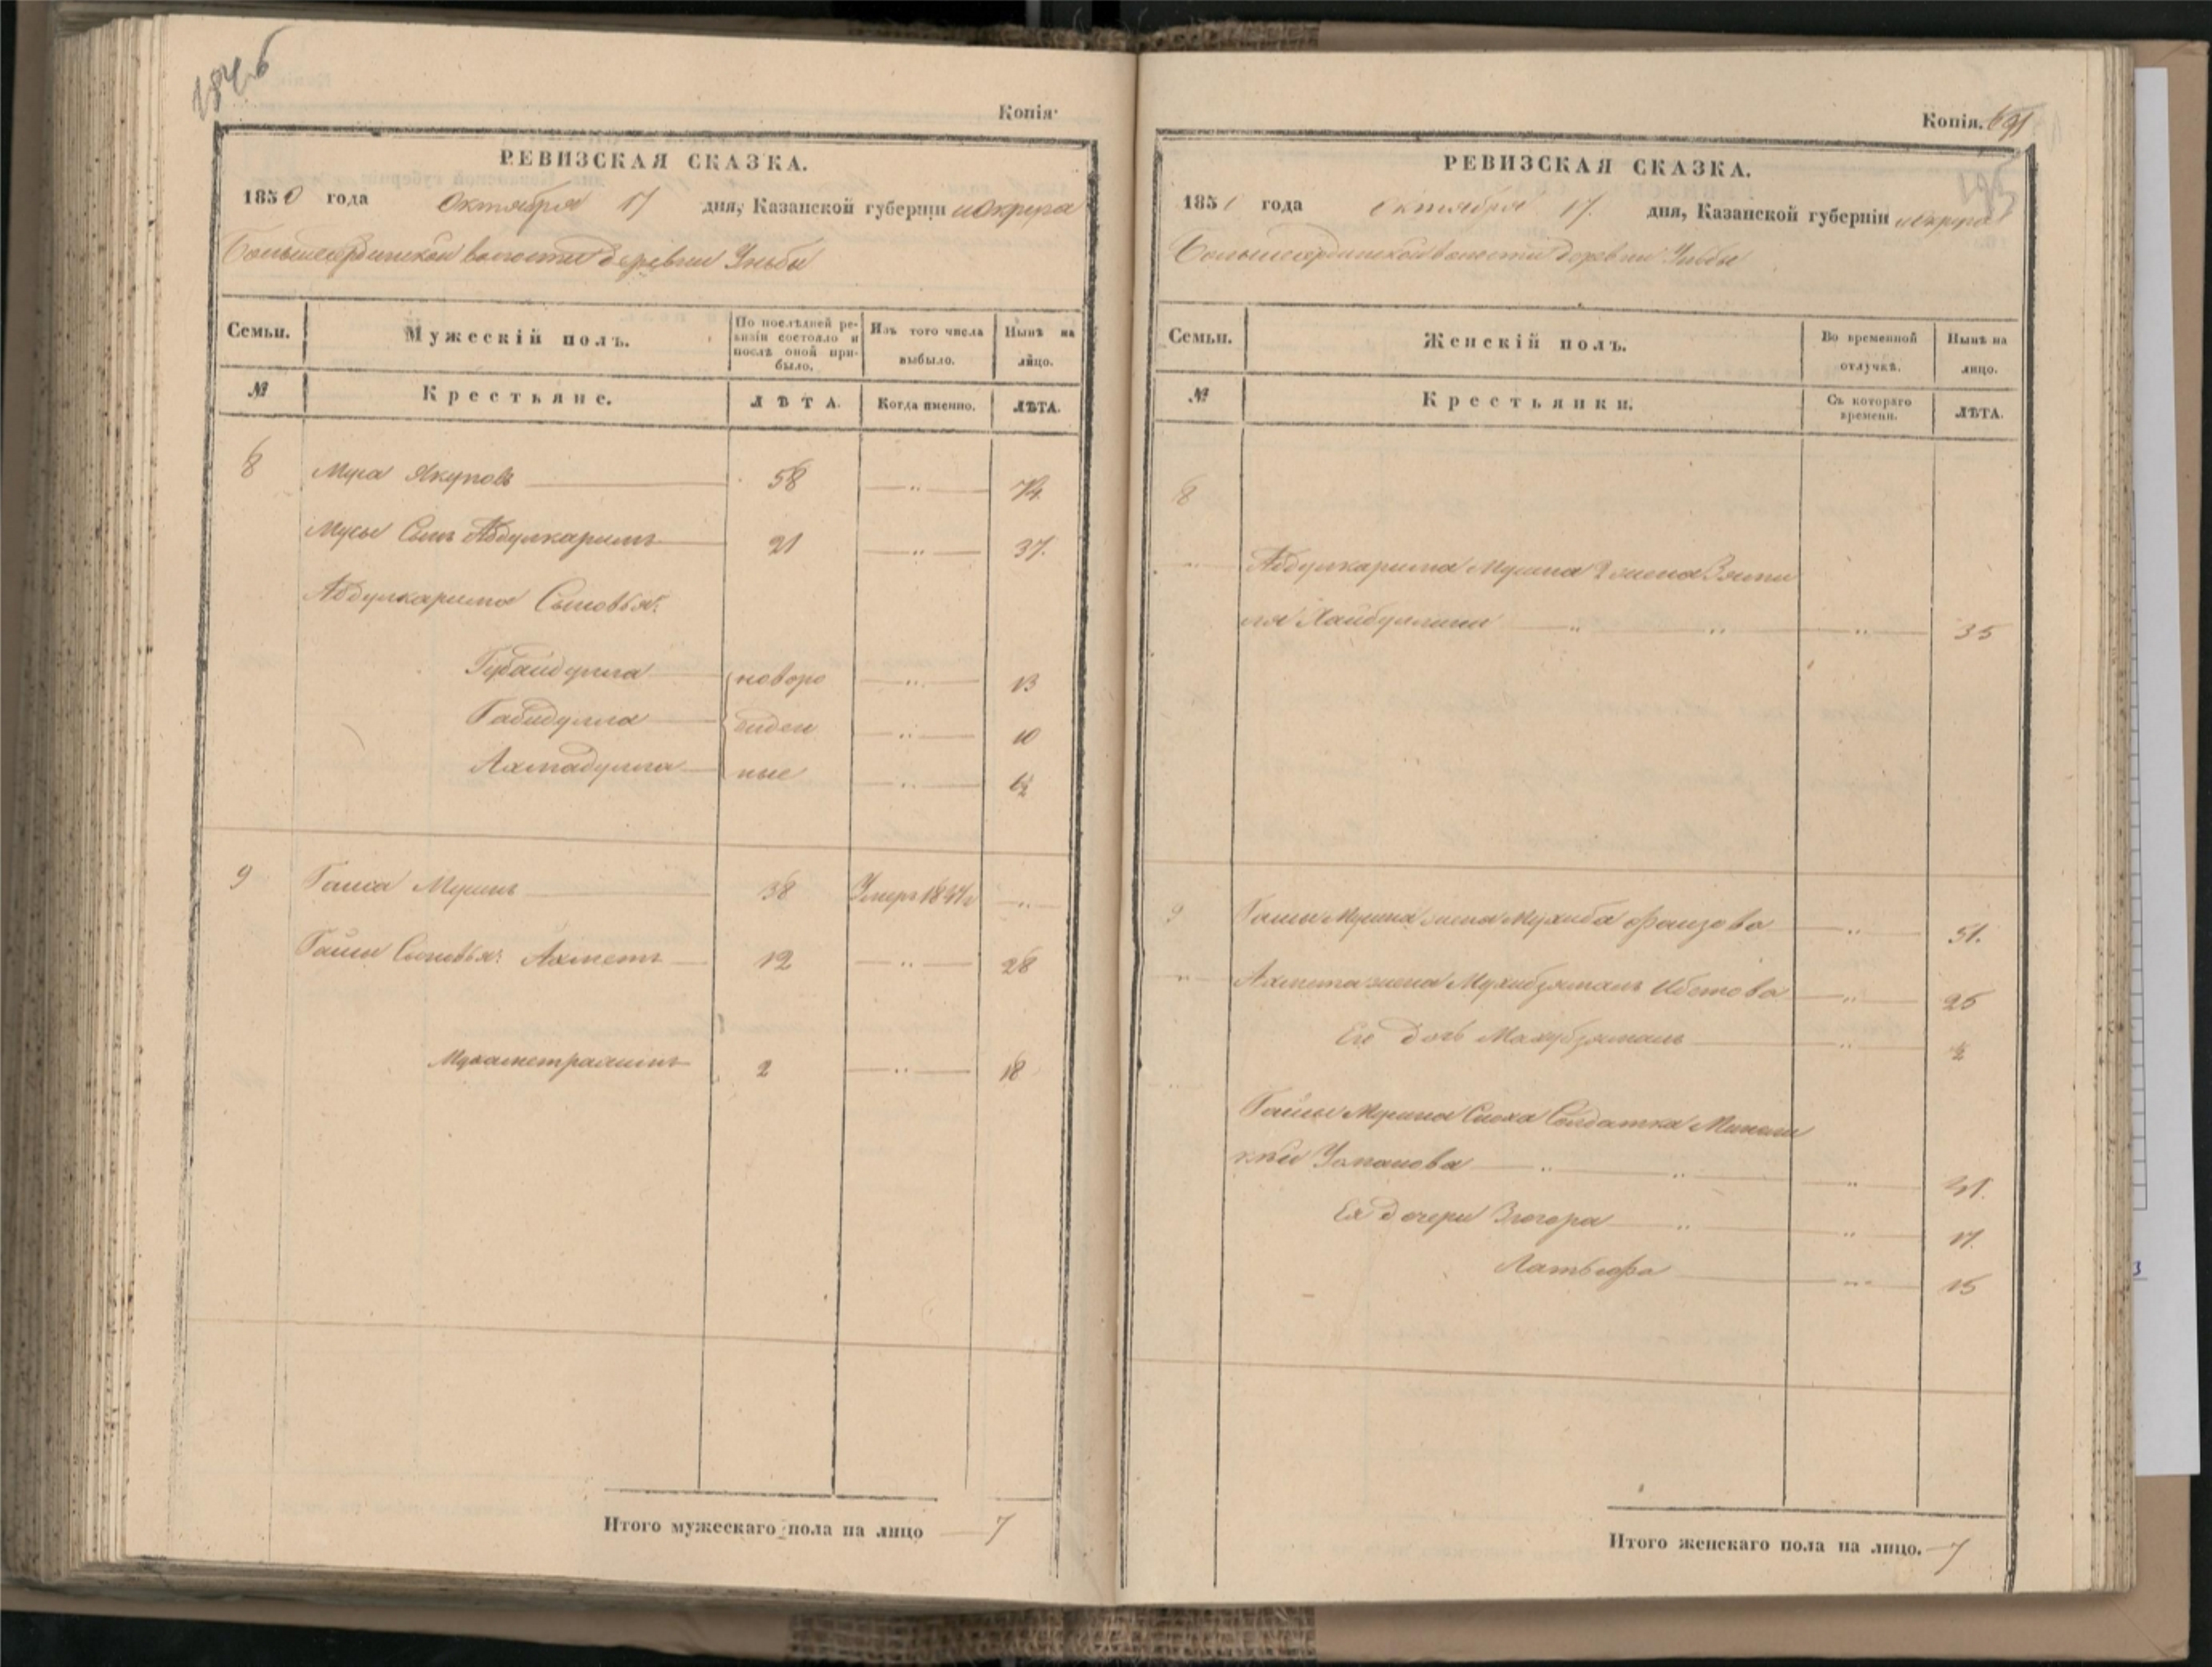 184 б
Копія
РЕВИЗСКАЯ СКАЗКА.
1850 года Октября 17 дня, Казанской губерніи и Округа
Большеердинской волости деревни Уньбы
Семьи. Мужескій полъ. По послѣдней ре-
визіи состояло и
послѣ оной при-
было. Изъ того числа
выбыло. Нынѣ на
лицо.
№ Крестьяне. ЛѢТА. Когда именно. ЛѢТА.
8 Муса Якуповъ 58 „ 74.
Мусы Сынъ Абдулкаримъ 21 „ 37.
Абдулкарима Сыновья:
Губайдулла новоро „ 13
Габидулла жден „ 10
Ахмадулла ные „ 1/2
9 Гайса Мусинъ 38 Умеръ 1847г „
Гайсы Сыновья: Ахметъ 12 „ 28
Мухаметрахимъ 2 „ 18
Итого мужескаго пола на лицо 7
Копія. 691
195
РЕВИЗСКАЯ СКАЗКА.
1850 года Октября 17. дня, Казанской губерніи и округа
Большеердинской волости деревни Уньбы
Семьи. Женскій полъ. Во временной
отлучкѣ. Нынѣ на
лицо.
№ Крестьянки. Съ котораго
времени. ЛѢТА.
8
„ Абдулкарима Мусина 2 жена
Хайбуллина „ „ „ 35
9 Гайсы Мусина жена Мухиба Фаизова „ 51.
„ Ахмета жена Мухибзямалъ „ 26
Его дочь Махубзямалъ „ 1/2
„ Гайсы Мусина Сноха Солдатка
„ „ „ 41.
Ея дочери Зюгора „ „ 17.
Латыфа „ 15
Итого женскаго пола на лицо. 7